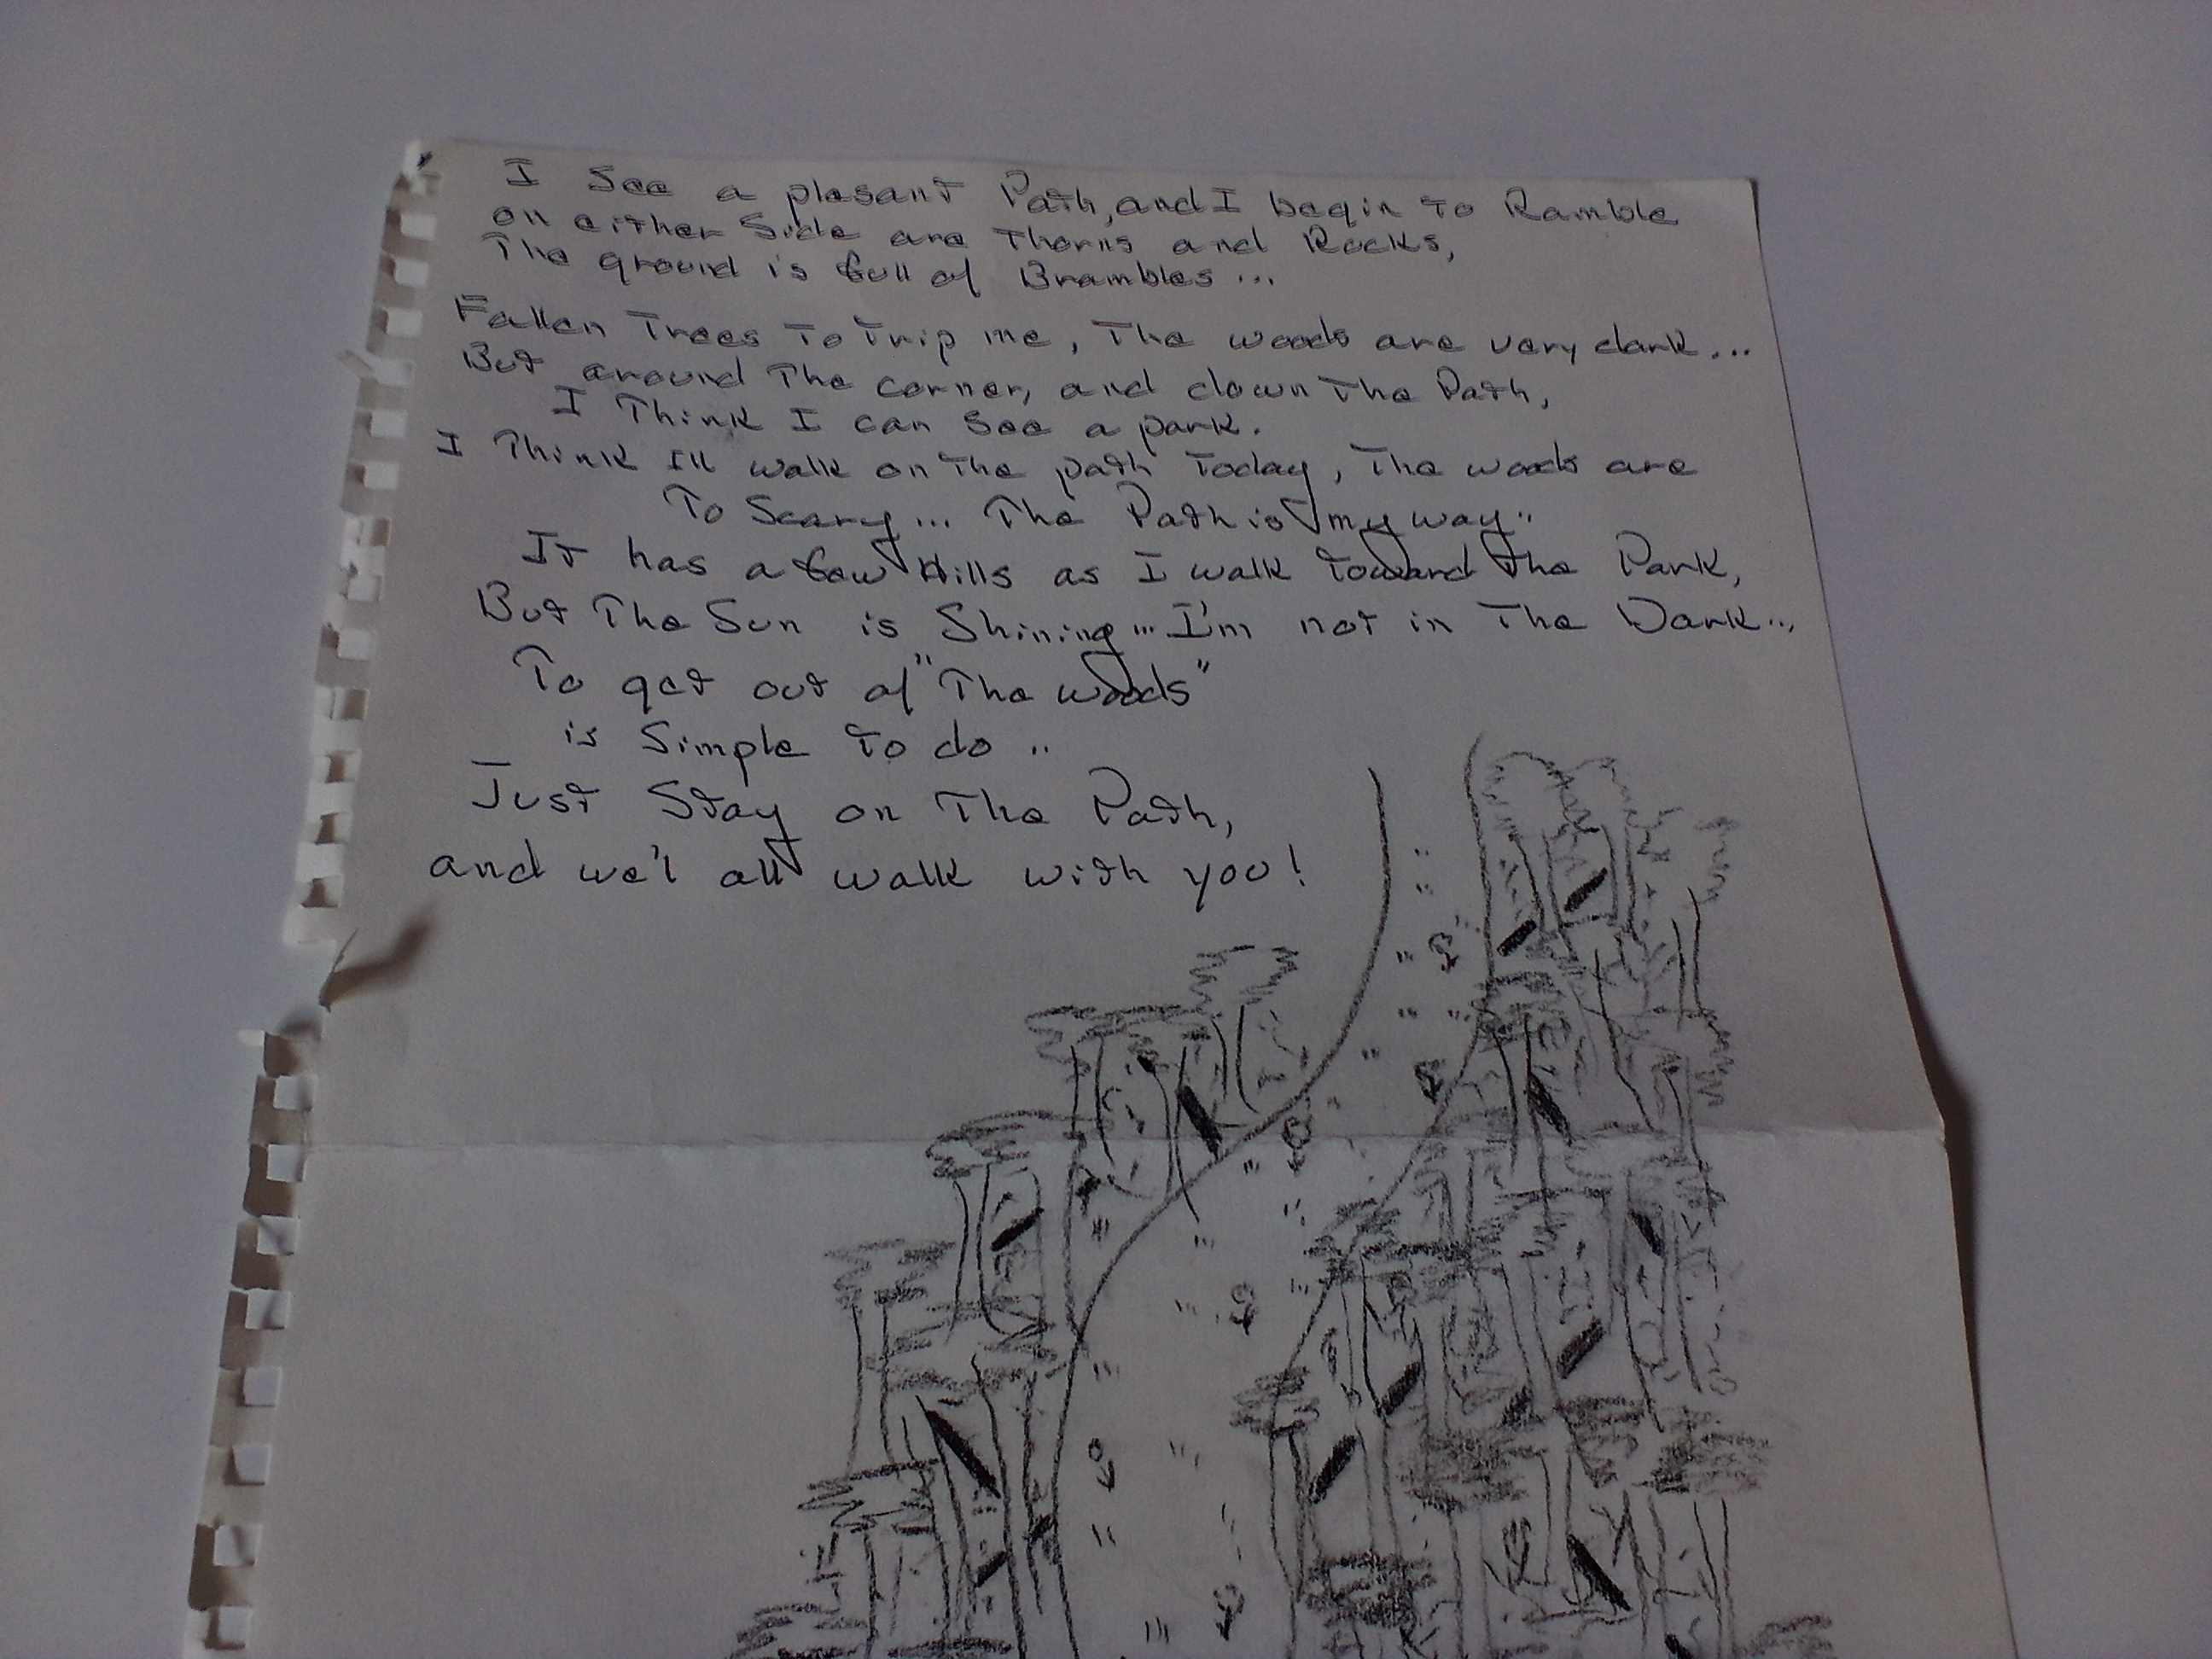 I See a plesant Path, and I begin To Ramble
on either Side are Thorns and Rocks,
The ground is full of Brambles...
Fallen Trees To Trip me, The woods are very dark...
But around The corner, and down The Path,
I Think I can See a park.
I Think I'll walk on The path Today, The woods are
To Scary... The Path is my way..
It has a few Hills as I walk toward The Park,
But The Sun is Shining... I'm not in The Dark...
To get out of "The woods"
is Simple To do ..
Just Stay on The Path,
and we'l all walk with you!